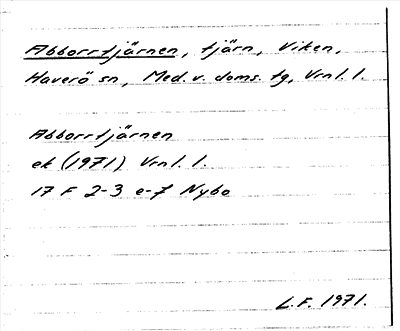 Abborrtjärnen, tjärn, Viken,
Haverö sn, Med. v. doms. tg, Vrnl. l.
Abborrtjärnen
ek (1971) Vrnl. l.
17 F 2-3 e-f Nybo
L.F. 1971.